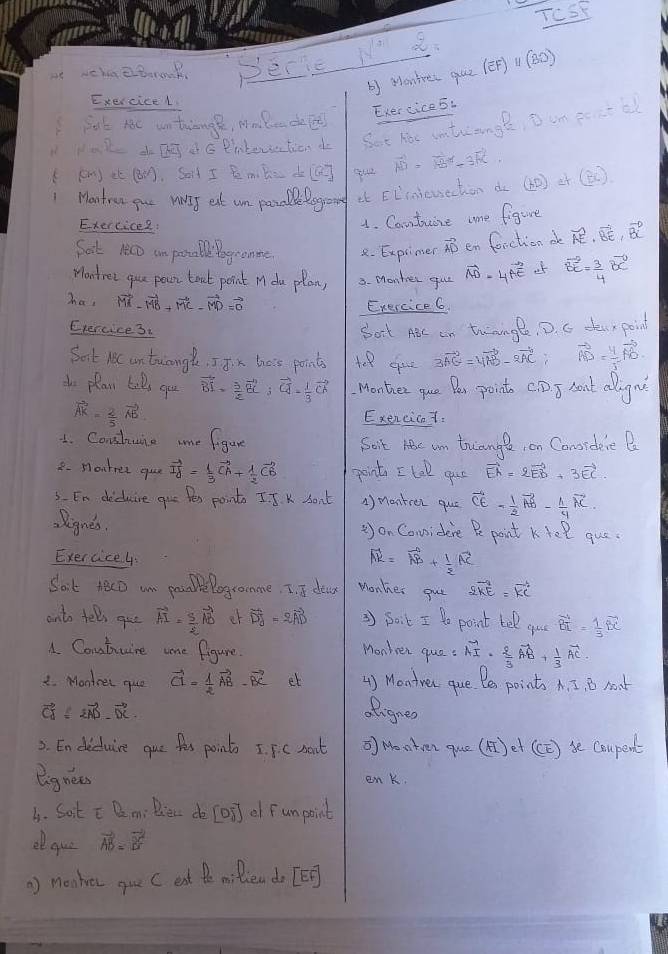 TCSF
Série N° 2
Exercice 1:
Soit ABC un triangle, M milieu de
de [AC] et G l'intersection de
et (BM). Soit I le milieu de [GC]
Montrer que MNIJ est un parallélogramme
Exercice 2:
Soit ABCD un parallélogramme.
Montrer que pour tout point M du plan,
MA - MB + MC - MD = 0
Exercice 3:
Soit ABC un triangle, I.J.K trois points
du plan tels que BI = 3/2 BC ; CJ = 1/3 CA
AK = 2/5 AB.
1. Construire une figure
2. Montrer que IJ = 1/3 CA + 1/2 CB
3. En déduire que les points I.J.K sont
alignés.
Exercice 4:
Soit ABCD un parallélogramme, I.J deux
tels que AI = 3/2 AB et DJ = 2AD
1. Construire une figure.
2. Montrer que CI = 1/2 AB - BC et
CJ = 2AD - DC.
3. En déduire que les points I.J.C sont
lignées
4. Soit E le milieu de [DJ] et F un point
el que AB = BF
a) Montrer que C est le milieu de [EF]
b) Montrer que (EF) // (BD)
Exercice 5:
Soit ABC un triangle, D un point tel
que AD = AB - 3AC.
et E l'intersection de (AD) et (BC).
1. Construire une figure
2. Exprimer AD en fonction de AE, BE, BC
3. Montrer que AD = 4AE et BE = 3/4 BC
Exercice 6.
Soit ABC un triangle, D.G deux point
tel que 3AG = 4AB - 2AC ; AD = 4/3 AB.
Montrer que les points C.D.J sont aligné
Exercice 7:
Soit ABC un triangle, on Considère le
points E tel que EA = 2EB + 3EC.
1) Montrer que CE = 1/2 AB - 1/4 AC.
2) On Considère le point K tel que.
AK = AB + 1/2 AC
Montrer que 2KE = KC
3) Soit I le point tel que BI = 1/3 BC
Montrer que: AI = 2/3 AB + 1/3 AC.
4) Montrer que les points A, I, B sont
alignés
5) Montrer que (AI) et (CE) se coupent
en K.